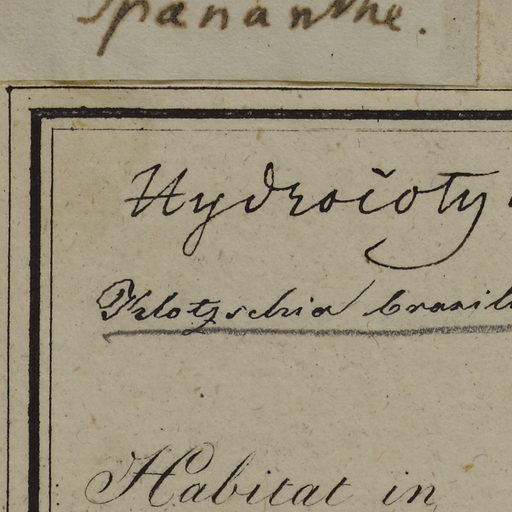 Spananthe.
Hydrocoty
Klotzschia brasil
Habitat in